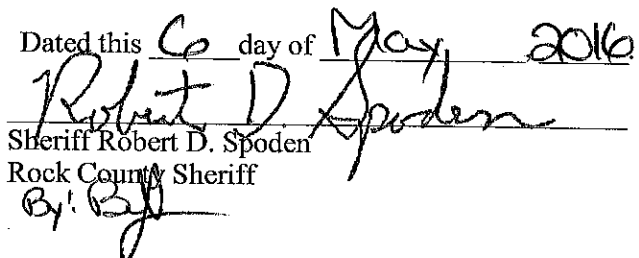 Dated this 6 day of May, 2016
Robert D. Spoden
Sheriff Robert D. Spoden
Rock County Sheriff
By: